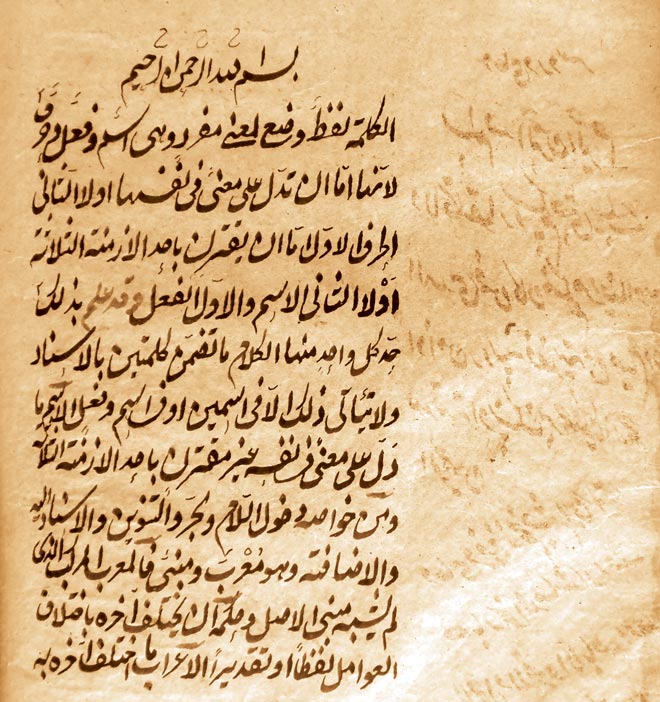 بسم الله الرحمن الرحیم
الكلمة لفظ وضع لمعنى مفرد وهى اسم وفعل وحرف
لانها اما ان تدل على معنى فى نفسها اولا الثانى
الحرف الاول اما ان يقترن باحد الازمنة الثلاثة
اولا الثانى الاسم والاول الفعل وقد علم بذلك
حد كل واحد منها الكلام ما تضمن كلمتين بالاسناد
ولا يتأتى ذلك الا فى اسمين او فى اسم وفعل الاسم ما
دل على معنى فى نفسه غير مقترن باحد الازمنة الثلاثة
ومن خواصه دخول اللام والجر والتنوين والاسناد اليه
والاضافة وهو معرب ومبنى فالمعرب المركب الذى
لم يشبه مبنى الاصل وحكمه ان يختلف آخره باختلاف
العوامل لفظاً او تقديراً الاعراب ما اختلف آخره به